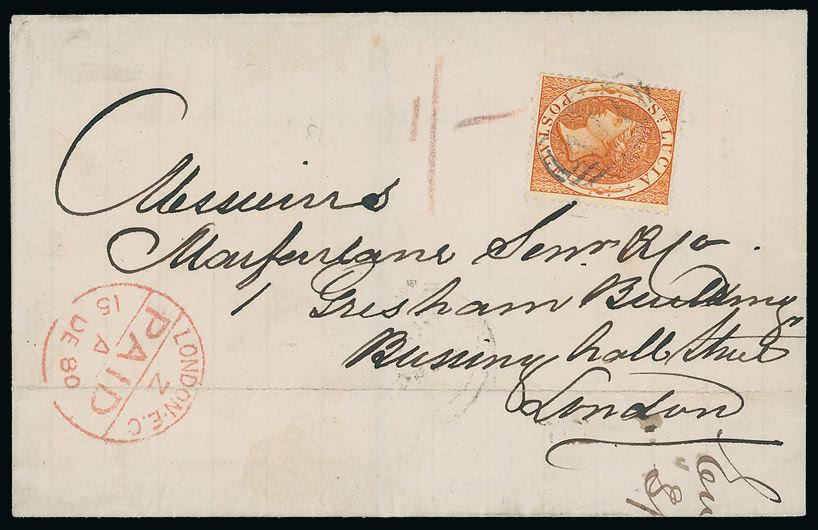 1/-
ST LUCIA
POSTAGE
Messieurs
Macfarlane Senr & Co.
1 Gresham Buildings
Bassing hall Street
London
LONDON·E.C
PAID
Z
A
15 DE 80